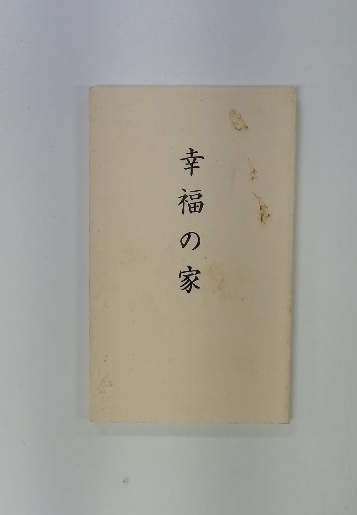 幸福の家